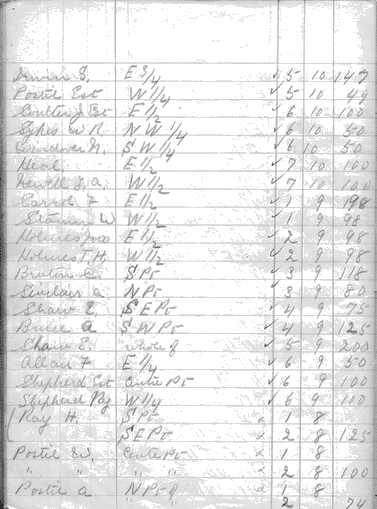 S, E 3/4 ✓ 5 10 147
Postil Est W 1/4 ✓ 5 10 49
Coulter J Est E 1/2 ✓ 6 10 100
Sykes W R N W 1/4 ✓ 6 10 50
S W 1/4 ✓ 6 10 50
Neal E 1/2 ✓ 7 10 100
Newell J, a W 1/2 ✓ 7 10 100
Carrol F E 1/2 ✓ 1 9 198
W W 1/2 ✓ 1 9 98
Holmes Jno E 1/2 ✓ 2 9 98
Holmes T H, W 1/2 ✓ 2 9 98
Bruton C, S Pt ✓ 3 9 118
Sinclair a N Pt ✓ 3 9 80
Shaw E, S E Pt ✓ 4 9 75
Bruce a S W Pt ✓ 4 9 125
Shaw E, whole of ✓ 5 9 200
Allan F E 1/4 ✓ 6 9 50
Shepherd Est Centre Pt ✓ 6 9 100
Shepherd W 1/4 ✓ 6 9
Ray H, S Pt 1 8
S E Pt 2 8 125
Postil W, Centre Pt 1 8
" " " " 2 8 100
Postil a N Pt of 1 8
2 74